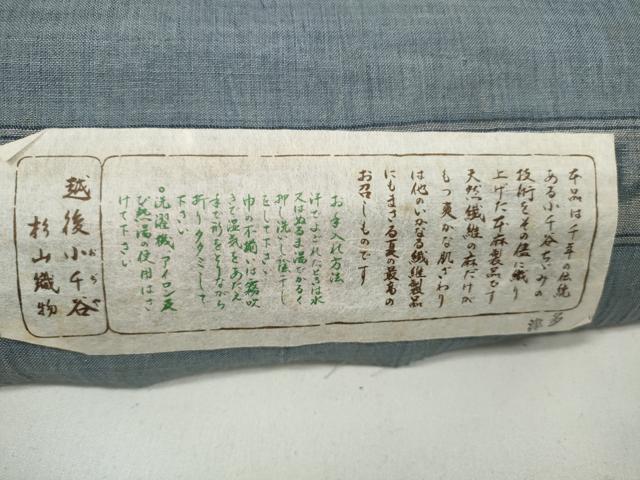 本品は千年の伝統
ある小千谷ちゞみの
技術をその侭に織り
上げた本麻製品です
天然繊維の麻だけが
もつ爽かな肌ざわり
は他のいかなる繊維製品
にもまさる夏の最高の
お召しものです
お手入れ方法
汗でよごれたときは水
又はぬるま湯でかるく
押し洗いし陰干し
をして下さい
巾の不揃いは霧吹
きで湿気をあたえ
手で形をとりながら
折りタタミして
下さい
○洗濯機、アイロン及
び熱湯の使用はさ
けて下さい
越後小千谷
おぢや
杉山織物